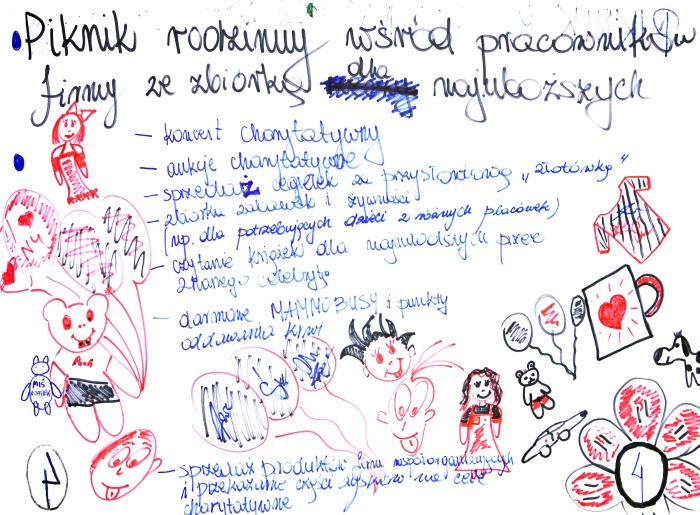 Piknik rodzinny wśród pracowników
firmy ze zbiórką dla najuboższych
– koncert charytatywny
– aukcje charytatywne
– sprzedaż cegiełek za przysłowiową „złotówkę”
– zbiórka zabawek i żywności
(np. dla potrzebujących dzieci z różnych placówek)
– czytanie książek dla najmłodszych przez
znanego celebrytę
– darmowe MAMMOBUSY i punkty
oddawania krwi
– sprzedaż produktów firm współorganizujących
i przekazanie części zysków na cele
charytatywne
NY
MIŚ
4